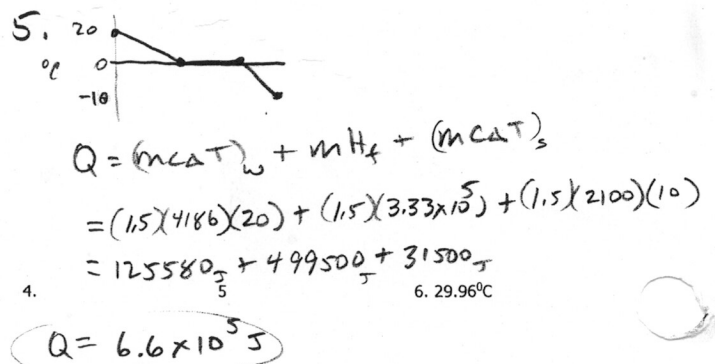 5. 20
°C 0
-10
Q = (mcΔT)w + mHf + (mcΔT)s
= (1.5)(4186)(20) + (1.5)(3.33x10⁵) + (1.5)(2100)(10)
= 125580J + 499500J + 31500J
4. 5 6. 29.96⁰C
Q = 6.6x10⁵ J